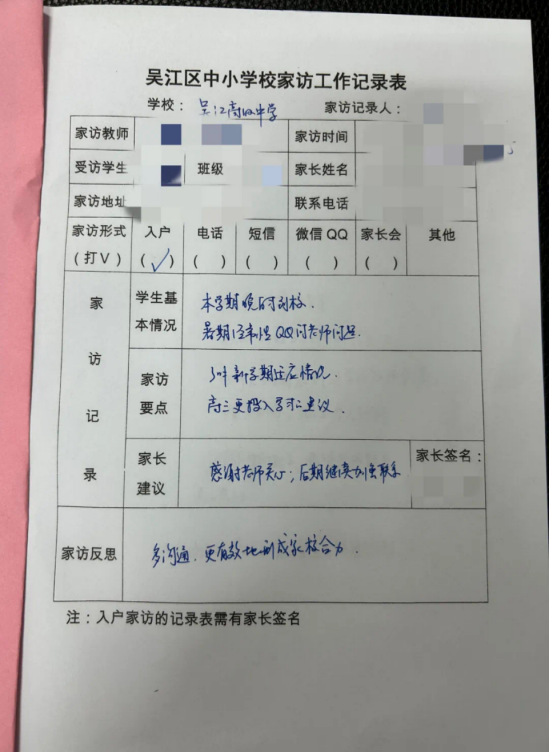 吴江区中小学校家访工作记录表
学校： 吴江高级中学 家访记录人：
家访教师 家访时间
受访学生 班级 家长姓名
家访地址 联系电话
家访形式 入户 电话 短信 微信QQ 家长会 其他
（打V） （√） （ ） （ ） （ ） （ ）
家访记录
学生基本情况
本学期晚 到校.
暑期经常性QQ问老师问题.
家访要点
了解新学期适应情况.
高三更投入学习建议.
家长建议
感谢老师关心；后期继续加强联系
家长签名：
家访反思
多沟通.更有效地形成家校合力.
注：入户家访的记录表需有家长签名